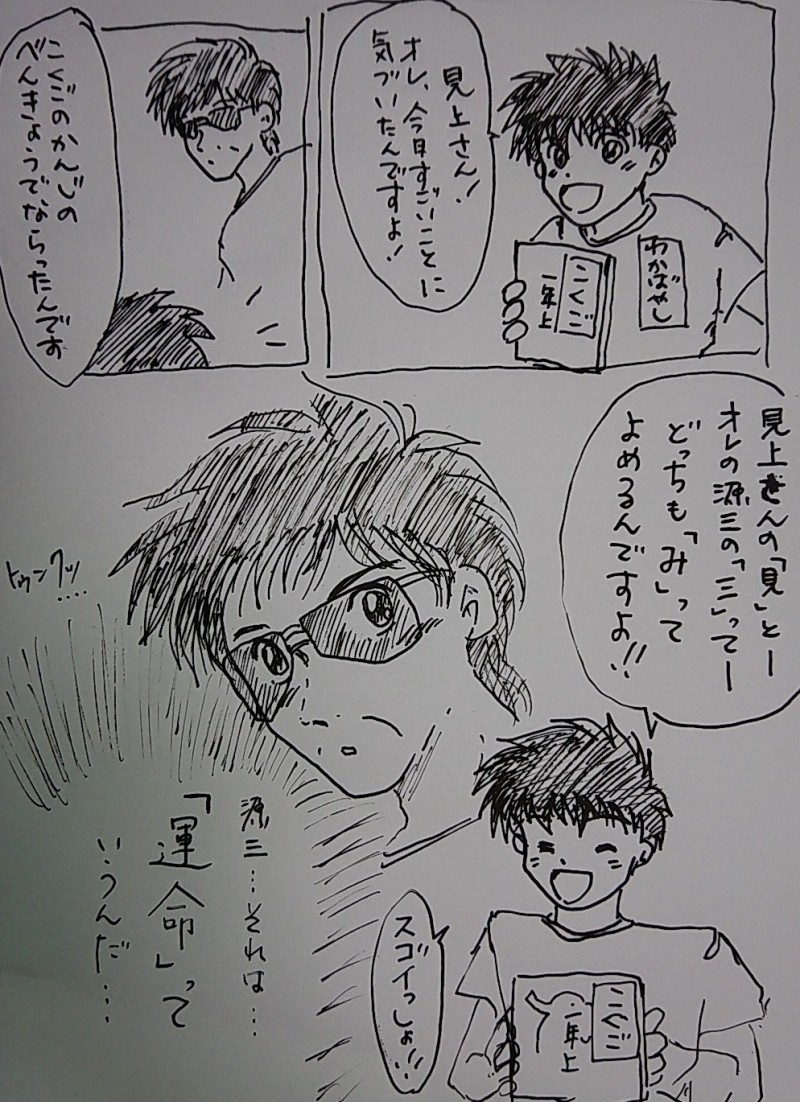 見上さん!
オレ、今日すごいことに
気づいたんですよ!
わかばやし
こくご
一年上
こくごのかんじの
べんきょうでならったんです
見上さんの「見」とー
オレの源三の「三」ってー
どっちも「み」って
よめるんですよ!!
トゥンクッ
....
スゴイっしょ!!
こくご
一年上
源三…それは…
「運命」って
いうんだ…